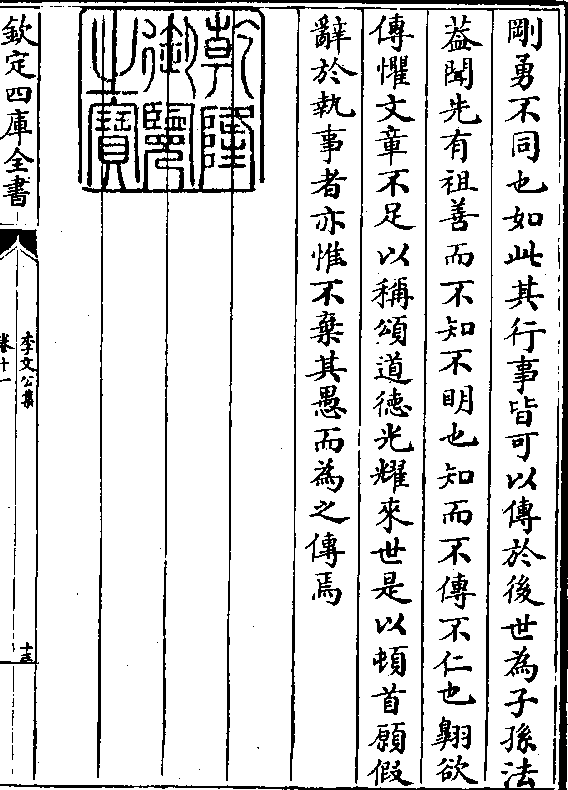 剛勇不同也如此其行事皆可以傳於後世為子孫法
葢聞先有祖善而不知不明也知而不傳不仁也翺欲
傳懼文章不足以稱頌道徳光耀來世是以頓首願假
辭於執事者亦惟不棄其愚而為之傳焉
乾隆
御覽
之寶
欽定四庫全書
李文公集
卷十一
十三